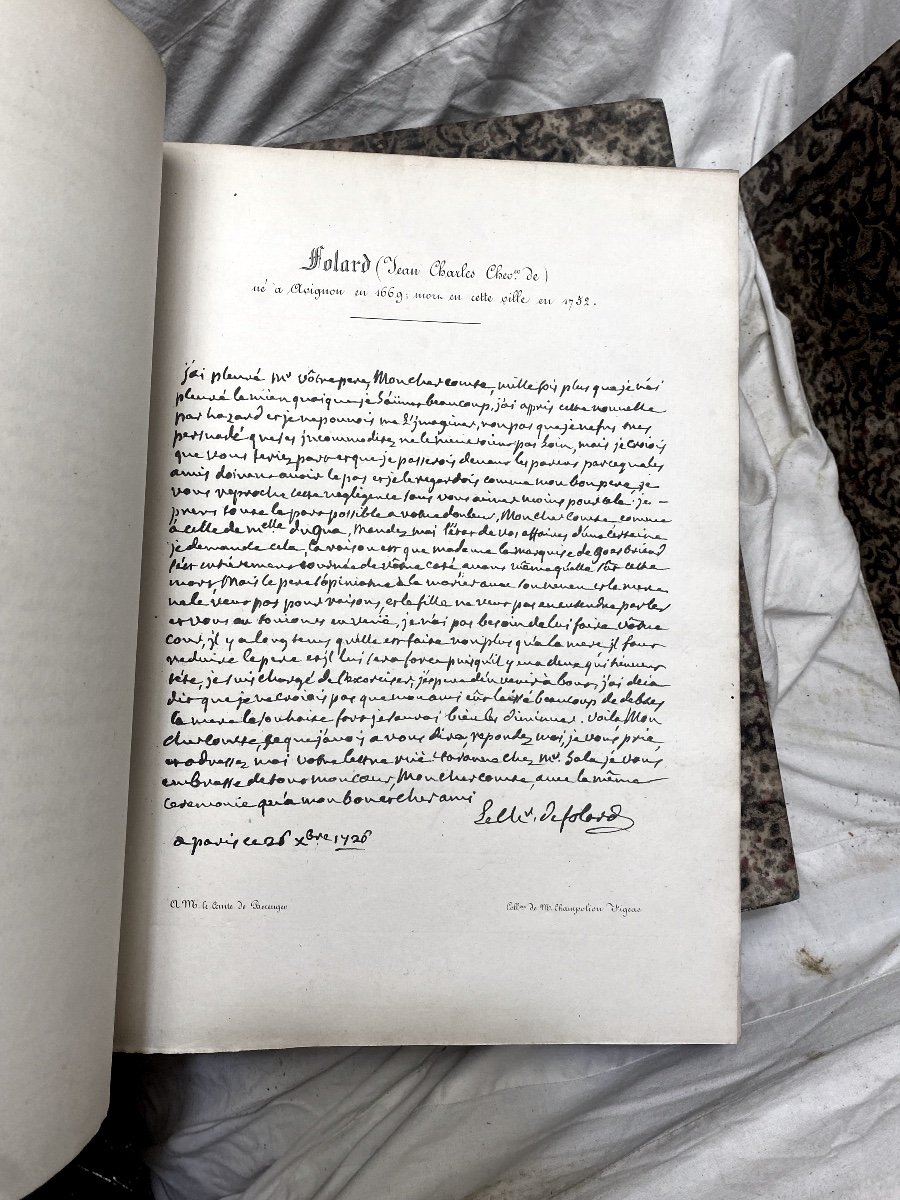 Folard (Jean Charles Chev.er de)
né à Avignon en 1669; mort en cette ville en 1752.
j'ai pleuré Mr vôtre pere, Mon cher comte, mille fois plus que je n'ai
pleuré le mien quoique je l'aime beaucoup, j'ai appris cette nouvelle
par hazard et je ne pouvois me l'imaginer, non pas que je ne fus tres
persuadé que ses incommoditez ne le meneroint pas loin, mais je croiois
que vous feriez part et que je passerois devant les parens parceque les
amis doivent avoir le pas et je le regardois comme mon bon pere, je
vous reproche cette negligence sans vous aimer moins pour cela: je
prens toute la part possible a votre douleur, Mon cher Comte, comme
à celle de Melle dugua, mandez moi l'état de vos affaires
je demande cela, la raison est que madame la marquise de goasbriand
s'est entièrement tournée de vôtre coté avant même qu'elle sût cette
mort, Mais le pere s'opiniatre à la marier avec son neveu et la mere
ne le veut pas pour raisons, et la fille ne veut pas en entendre parler
et vous au toujours en veuë, je n'ai pas besoin de lui faire vôtre
cour, il y a longtems qu'elle est faite non plus qu'a la mere, il faut
reduire le pere et il lui sera force puisqu'il y en a deux qui tiennent
tête, je suis chargé de l'exorciser, j'espere d'en venir à bout, j'ai deia
dit que je ne croiois pas que mon ami eût laissé beaucoup de debtes
la mere le souhaite fort je saurai bien les diminuer. voila Mon
cher Comte, ce que j'avoi a vous dire, repondez moi, je vous prie,
et adressez moi votre lettre ruë chez Mr. Sala je vous
embrasse de tout mon coeur, Mon cher comte, avec la même
ceremonie qu'a mon bon et cher ami
Le Chr. De folard
a paris ce 26 Xbre 1726
A M. le Comte de Berenger
Coll.on de M. Champolion Figeac